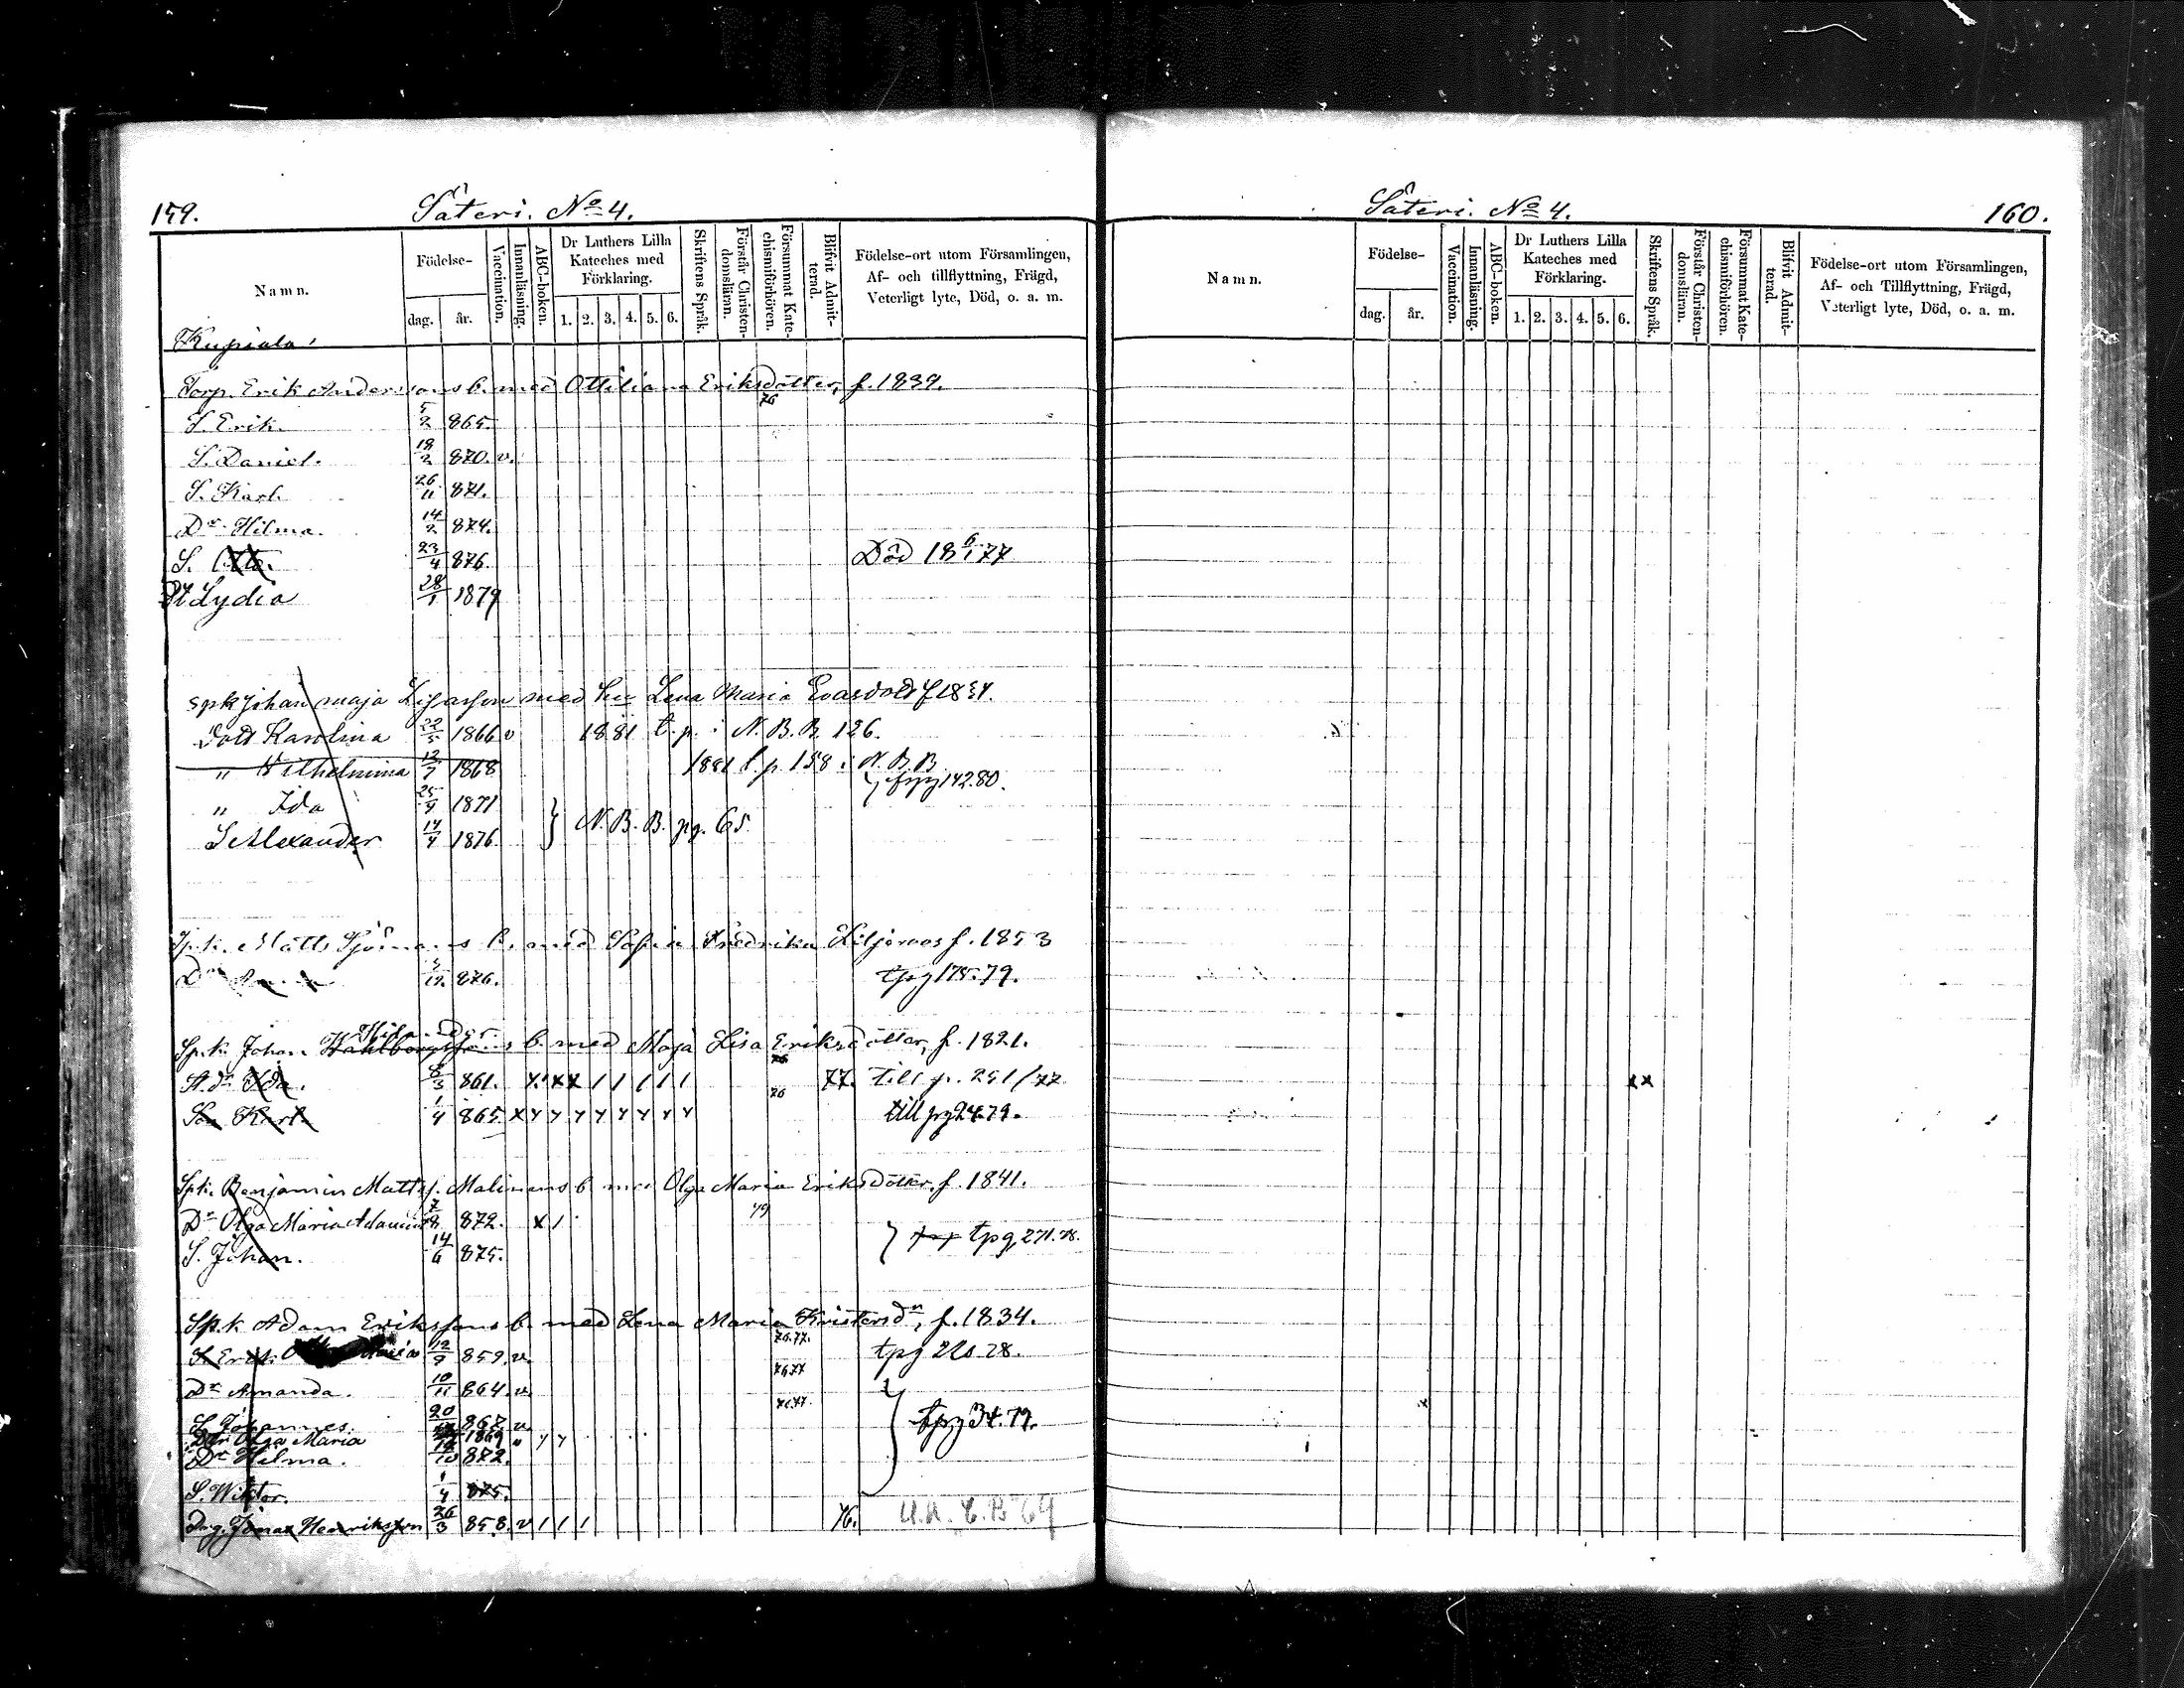 159.
Såteri. No 4.
Namn.
Födelse-
dag.
år.
Vaccination.
Innanläsning.
ABC-boken.
Dr Luthers Lilla Kateches med Förklaring.
1. 2. 3. 4. 5. 6.
Skriftens Språk.
Förstår Christen-domsläran.
Försummat Kate-chismiförhören.
Blifvit Admit-terad.
Födelse-ort utom Församlingen,
Af- och tillflyttning, Frägd,
Veterligt lyte, Död, o. a. m.
Kupiala
Torp. Erik Anderssons b. med Ottiliana Eriksdotter, f. 1839.
76
S. Erik. 5/2 865.
S. Daniel. 18/2 870. v.
S. Karl. 26/11 871.
Dr Hilma. 14/2 874.
S. Otto. 23/4 876. Död 18 6/1 77
Dt Lydia 28/1 1879
spk Johan med hu Lena Maria f 1834.
Dott Karolina 22/5 1866 v 1881 t. p. i N. B. B. 126.
" Wilhelmina 12/7 1868 1881 t. p. 158 i N. B. B.
tpg 142.80.
" Ida 25/9 1871
} N. B. B. pg. 65.
S Alexander 14/4 1876.
Sp.k. Matts Sjömans b. med Sofia Fredrika Liljeroos f. 1853
Dr 12. 876. tpg 175.79.
Sp.k. Johan b. med Maja Lisa Eriksdotter, f. 1821.
76
St.dr Ida. 8/3 861. x. x x 1 1 1 1 1 77. till p. 251/77
76
Son Karl. 1/4 865. x y y y y y y y till pg 24.79.
Spk. Benjamin Mattss. Malinens b. med Olga Maria Eriksdotter. f. 1841.
Dr Olga Maria 7/8 872. x 1 79
} tpg 271.78.
S. Johan. 14/6 875.
Sp.k. Adam Erikssons b. med Lena Maria Kristersdr, f. 1834.
76.77.
S. Erik 12/9 859. v. tpg 220 78.
76.77
Dr Amanda. 10/11 864. v.
76.77.
S. Johannes. 20 867. v. } tpg 34.79.
Dtr Olga Maria 1869 " y y
Dr Hilma. 10 872.
S. Wiktor. 1/4 875.
Dng. Jonas Henriksson 26/3 858. v 1 1 1 76.
160.
Såteri. No 4.
Namn.
Födelse-
dag.
år.
Vaccination.
Innanläsning.
ABC-boken.
Dr Luthers Lilla Kateches med Förklaring.
1. 2. 3. 4. 5. 6.
Skriftens Språk.
Förstår Christen-domsläran.
Försummat Kate-chismiförhören.
Blifvit Admit-terad.
Födelse-ort utom Församlingen,
Af- och Tillflyttning, Frägd,
Veterligt lyte, Död, o. a. m.
x x